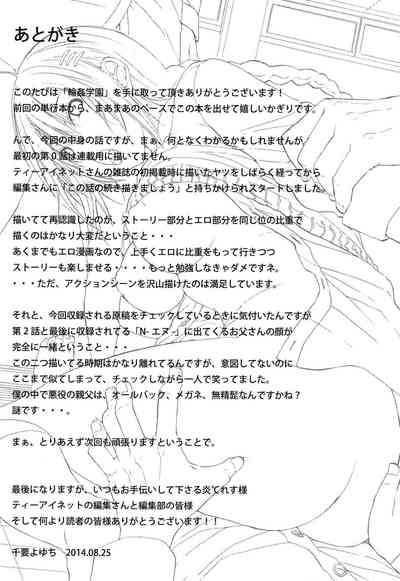 あとがき
このたびは「輪姦学園」を手に取って頂きありがとうございます！
前回の単行本から、まあまあのペースでこの本を出せて嬉しいかぎりです。
んで、今回の中身の話ですが、まぁ、何となくわかるかもしれませんが
最初の第０話は連載用に描いてません。
ティーアイネットさんの雑誌の初掲載時に描いたヤツをしばらく経ってから
編集さんに「この話の続き描きましょう」と持ちかけられスタートしました。
描いてて再認識したのが、ストーリー部分とエロ部分を同じ位の比重で
描くのはかなり大変だということ・・・
あくまでもエロ漫画なので、上手くエロに比重をもって行きつつ
ストーリーも楽しませる・・・・もっと勉強しなきゃダメですネ。
・・・ただ、アクションシーンを沢山描けたのは満足しています。
それと、今回収録される原稿をチェックしているときに気付いたんですが
第２話と最後に収録されてる「N- エヌ -」に出てくるお父さんの顔が
完全に一緒ということ・・・
この二つ描いてる時期はかなり離れてるんですが、意図してないのに
ここまで似てしまって、チェックしながら一人で笑ってました。
僕の中で悪役の親父は、オールバック、メガネ、無精髭なんですかね？
謎です・・・。
まぁ、とりあえず次回も頑張りますということで。
最後になりますが、いつもお手伝いして下さる炎てれす様
ティーアイネットの編集さんと編集部の皆様
そして何より読者の皆様ありがとうございます！！
千要よゆち　2014.08.25